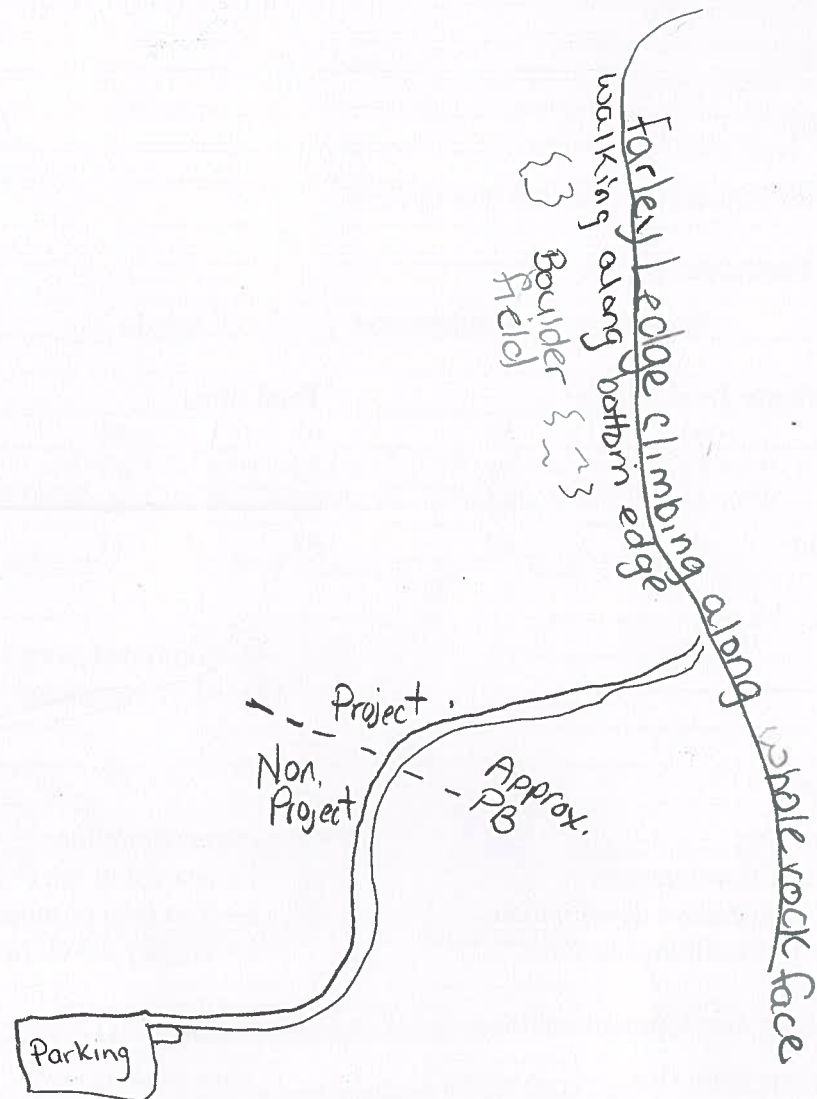 farley ledge climbing along whole rock face
walking along bottom edge
Boulder
field
Project
Non.
Project
Approx.
PB
Parking